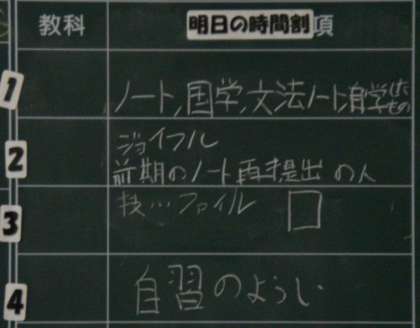 教科
明日の時間割 項
1
ノート,国学,文法ノート,自学したもの
2
ジョイフル
前期のノート再提出の人
3
技…ファイル □
4
自習のようい